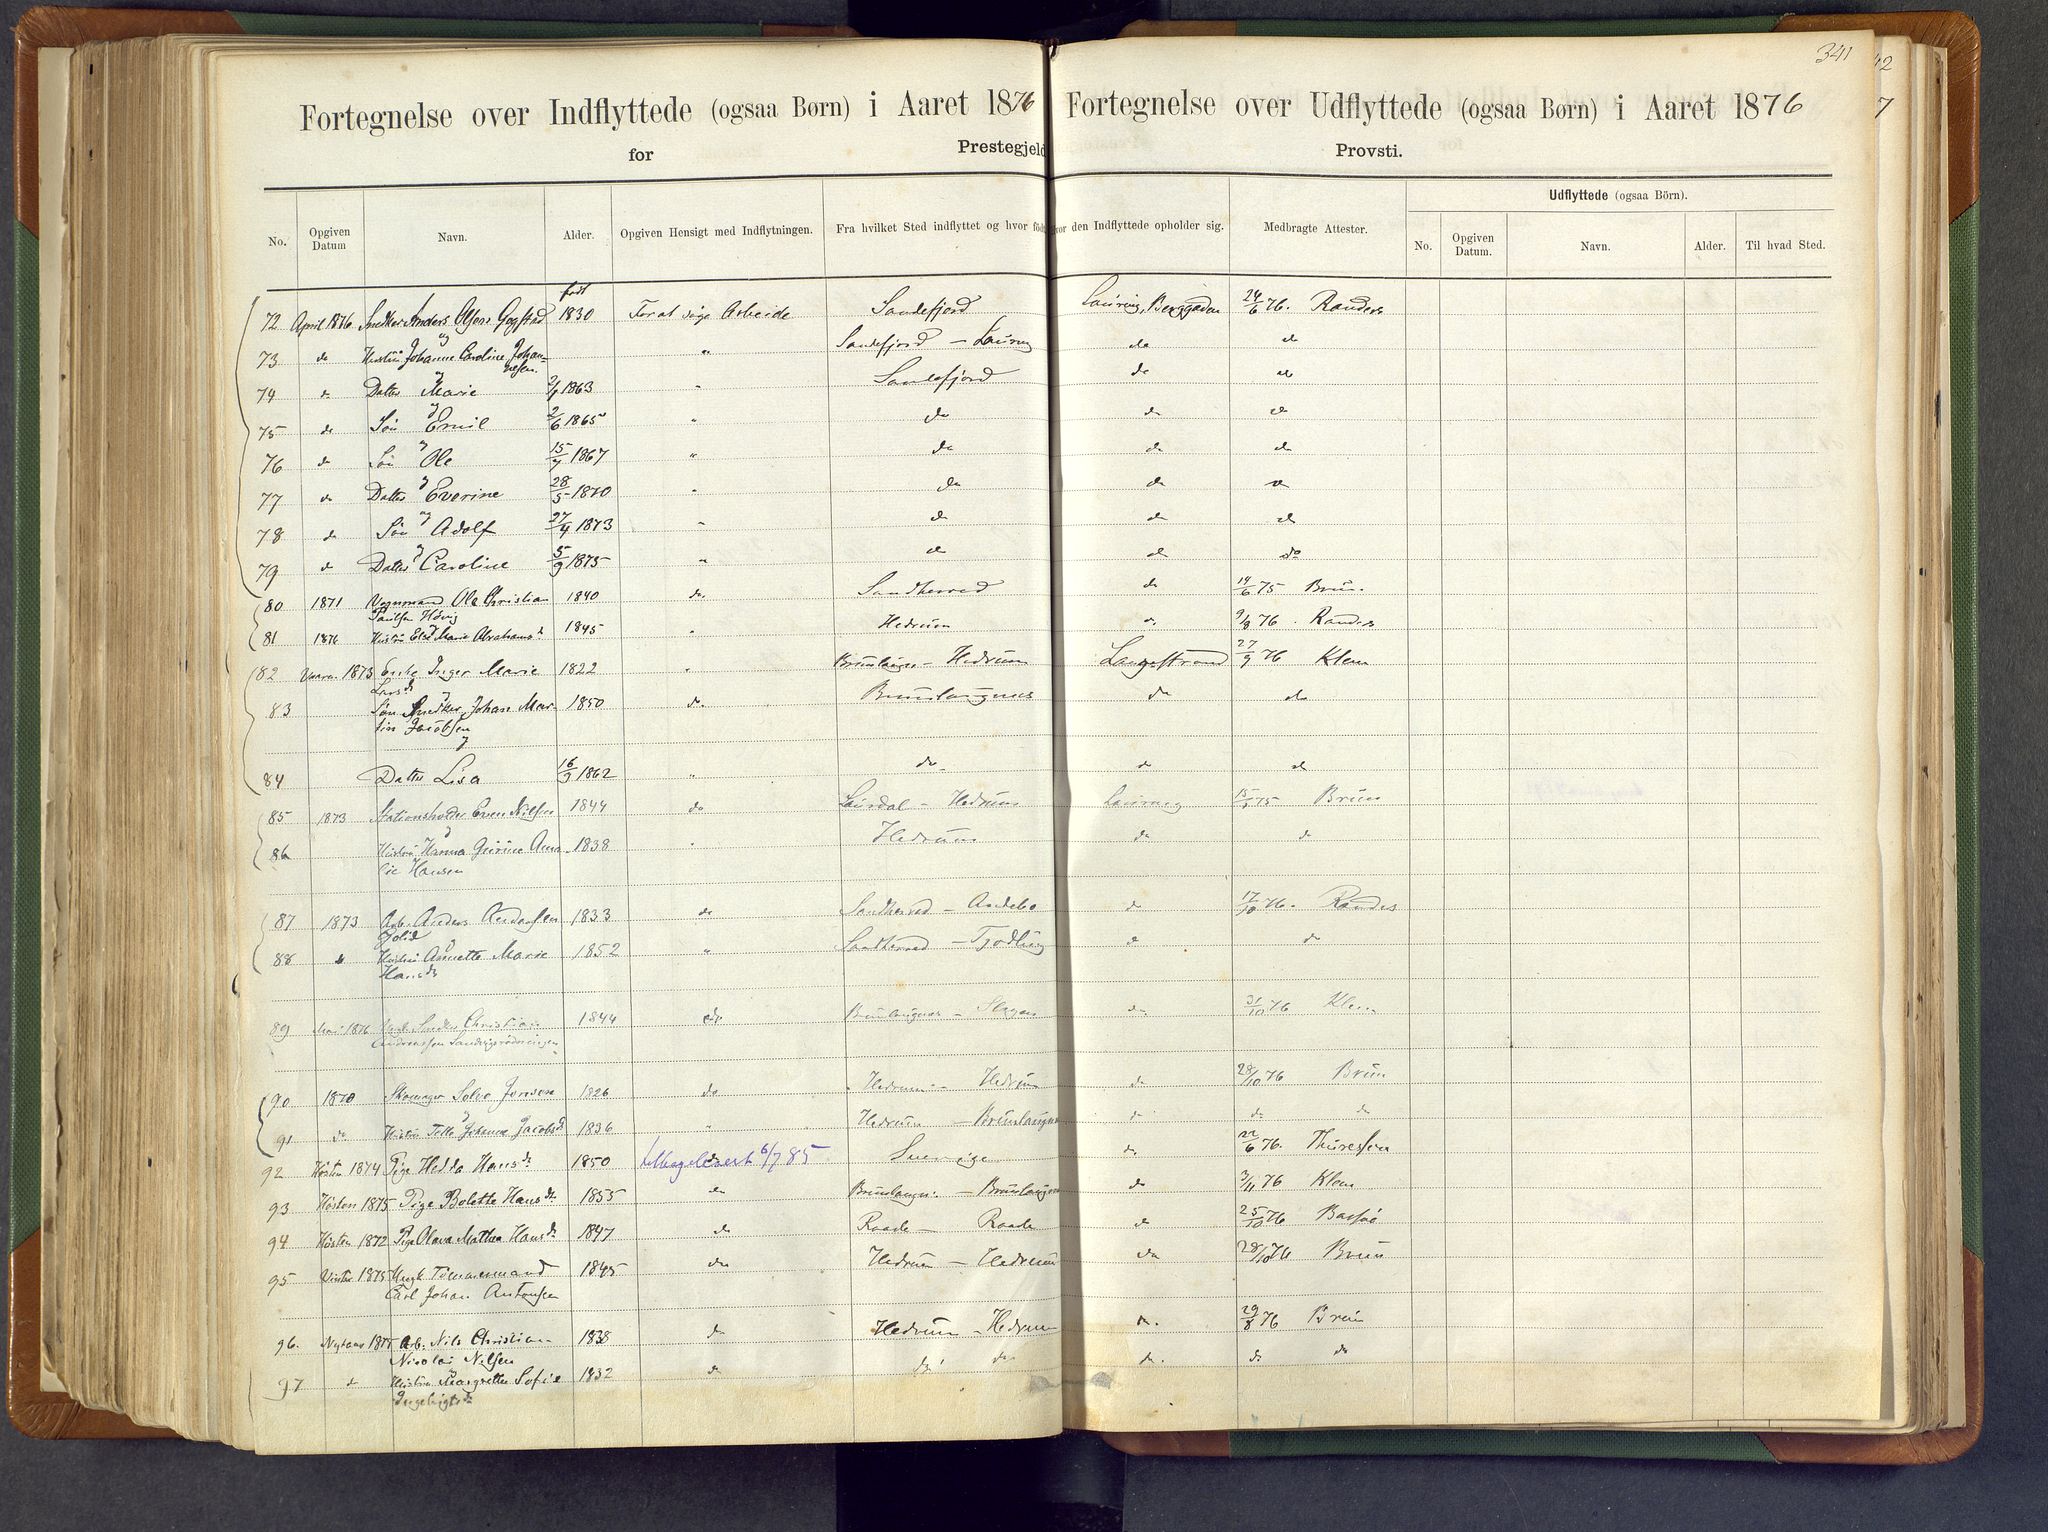 341
42
7
Fortegnelse over Indflyttede (ogsaa Børn) i Aaret 1876
Fortegnelse over Udflyttede (ogsaa Børn) i Aaret 1876
for Prestegjeld
Provsti.
No. Opgiven Datum Navn. Alder. Opgiven Hensigt med Indflytningen. Fra hvilket Sted indflyttet og hvor født den Indflyttede opholder sig. Medbragte Attester.
Udflyttede (ogsaa Börn).
No. Opgiven Datum. Navn. Alder. Til hvad Sted.
født
72 April 1876 Snedker Anders Olsen Gogstad 1830 For at søge Arbeide Sandefjord Laurvig, Berggaden 24/6 76. Randers
og
73 do Hustru Johanne Caroline Johan- " Sandefjord – Laurvig do do
nesen.
og
74 do Datter Marie 2/9 1863 " Sandefjord do do
og
75 do Søn Emil 2/6 1865 " do do do
og
76 do Søn Ole 15/7 1867 " do do do
og
77 do Datter Everine 28/5 1870 " do do do
og
78 do Søn Adolf 27/4 1873 " do do do
og
79 do Datter Caroline 5/9 1875 " do do do
80 1871 Ole Christian 1840 do. Sandherred do 14/6 75 Brun.
Paulsen
81 1876 Hustru Else Marie Abrahamsd 1845 " Hedrum do 9/8 76. Randers
82 Vaaren 1873 Enke Inger Marie 1822 " Brunlangnes – Hedrum Langestrand 27/9 76 Klem
Larsd
83 Søn Snedker Johan Mar- 1850 do. Brunlangnes do do
tin Jacobsen
og
84 Datter Lisa 16/9 1862 " do. do do
85 1873 Stationsholder Even Nilsen 1844 do Laurdal – Hedrum Laurvig 75 Brun
og
86 Hustru Hanna Gurine Ama- 1838 " Hedrum do do
lie Hansen
87 1873 Arb. Anders Andersen 1833 do Sandherred – Andebo do 17/10 76. Randers
og
88 do Hustru Annette Marie 1852 " Sandherred – Tjodling do do
Hansd
89 1876 Snedker Christian 1844 do Brunlangnes – Slagen do 31/10 76 Klem
Andreassen
90 1870 Skomager Solve Jensen 1826 do Hedrum – Hedrum do 28/10 76 Brun
og
91 do Hustru Johanne Jacobsd 1836 " Hedrum – Brunlangnes do do do
92 Høsten 1874 Pige Hedda Hansd 1850 6/7 85 Sverige do. 22/6 76. Thuresen
93 Høsten 1875 Pige Bolette Hansd 1855 do Brunlangn. – Brunlangnes do 3/11 76 Klem
94 Høsten 1872 Pige Olava Mathea Hansd 1847 do Raade – Raade do 25/10 76 Bassøe
95 Vinter 1875 Ungk Tømmermand 1845 do Hedrum – Hedrum do 28/10 76 Brun
Carl Johan Antonsen
96. Nytaar 1875 Arb. Nils Christian 1838 do Hedrum – Hedrum do. 29/8 76 Brun
Nicolai Nilsen
97 do Hustru Margrethe Sofie 1832 do do do do. do do
Ingebrigtsd